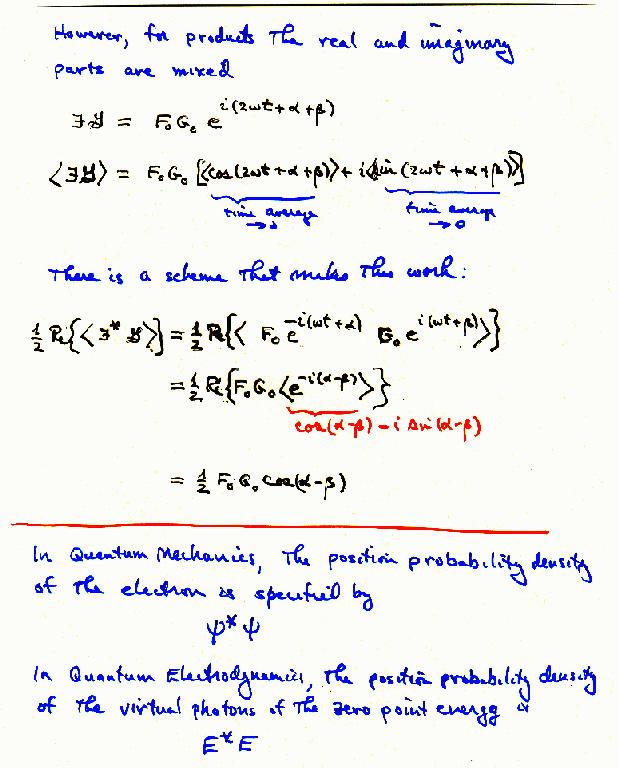 However, for products the real and imaginary
parts are mixed
ℱ𝒢 = F₀G₀ e^{i(2ωt+α+β)}
⟨ℱ𝒢⟩ = F₀G₀ [⟨cos(2ωt+α+β)⟩ + i⟨sin(2ωt+α+β)⟩]
time average → 0 time average → 0
There is a scheme that makes this work:
½ Re{⟨ℱ* 𝒢⟩} = ½ Re{⟨F₀ e^{-i(ωt+α)} G₀ e^{i(ωt+β)}⟩}
= ½ Re{F₀G₀⟨e^{-i(α-β)}⟩}
cos(α-β) - i sin(α-β)
= ½ F₀G₀ cos(α-β)
In Quantum Mechanics, the position probability density
of the electron is specified by
ψ* ψ
In Quantum Electrodynamics, the position probability density
of the virtual photons of the zero point energy is
E* E